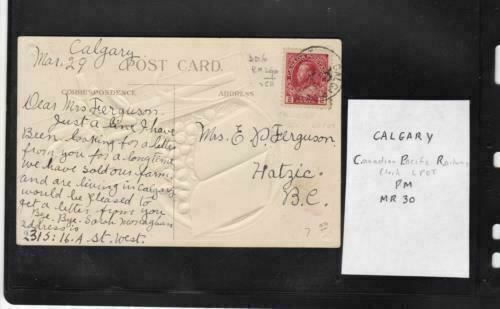 Calgary
Mar. 29
POST CARD.
CORRESPONDENCE
ADDRESS
Dear Mrs Ferguson.
Just a line I have
Been looking for a letter
from you for a long time
we have sold our farm
and are living in Calgary
would be pleased to
get a letter from you
Bye. Bye. Sarah
address is
2315: 16. A St. West.
Mrs. E. P. Ferguson
Hatzic
B.C.
CALGARY
Canadian Pacific Railway
PM
MR 30